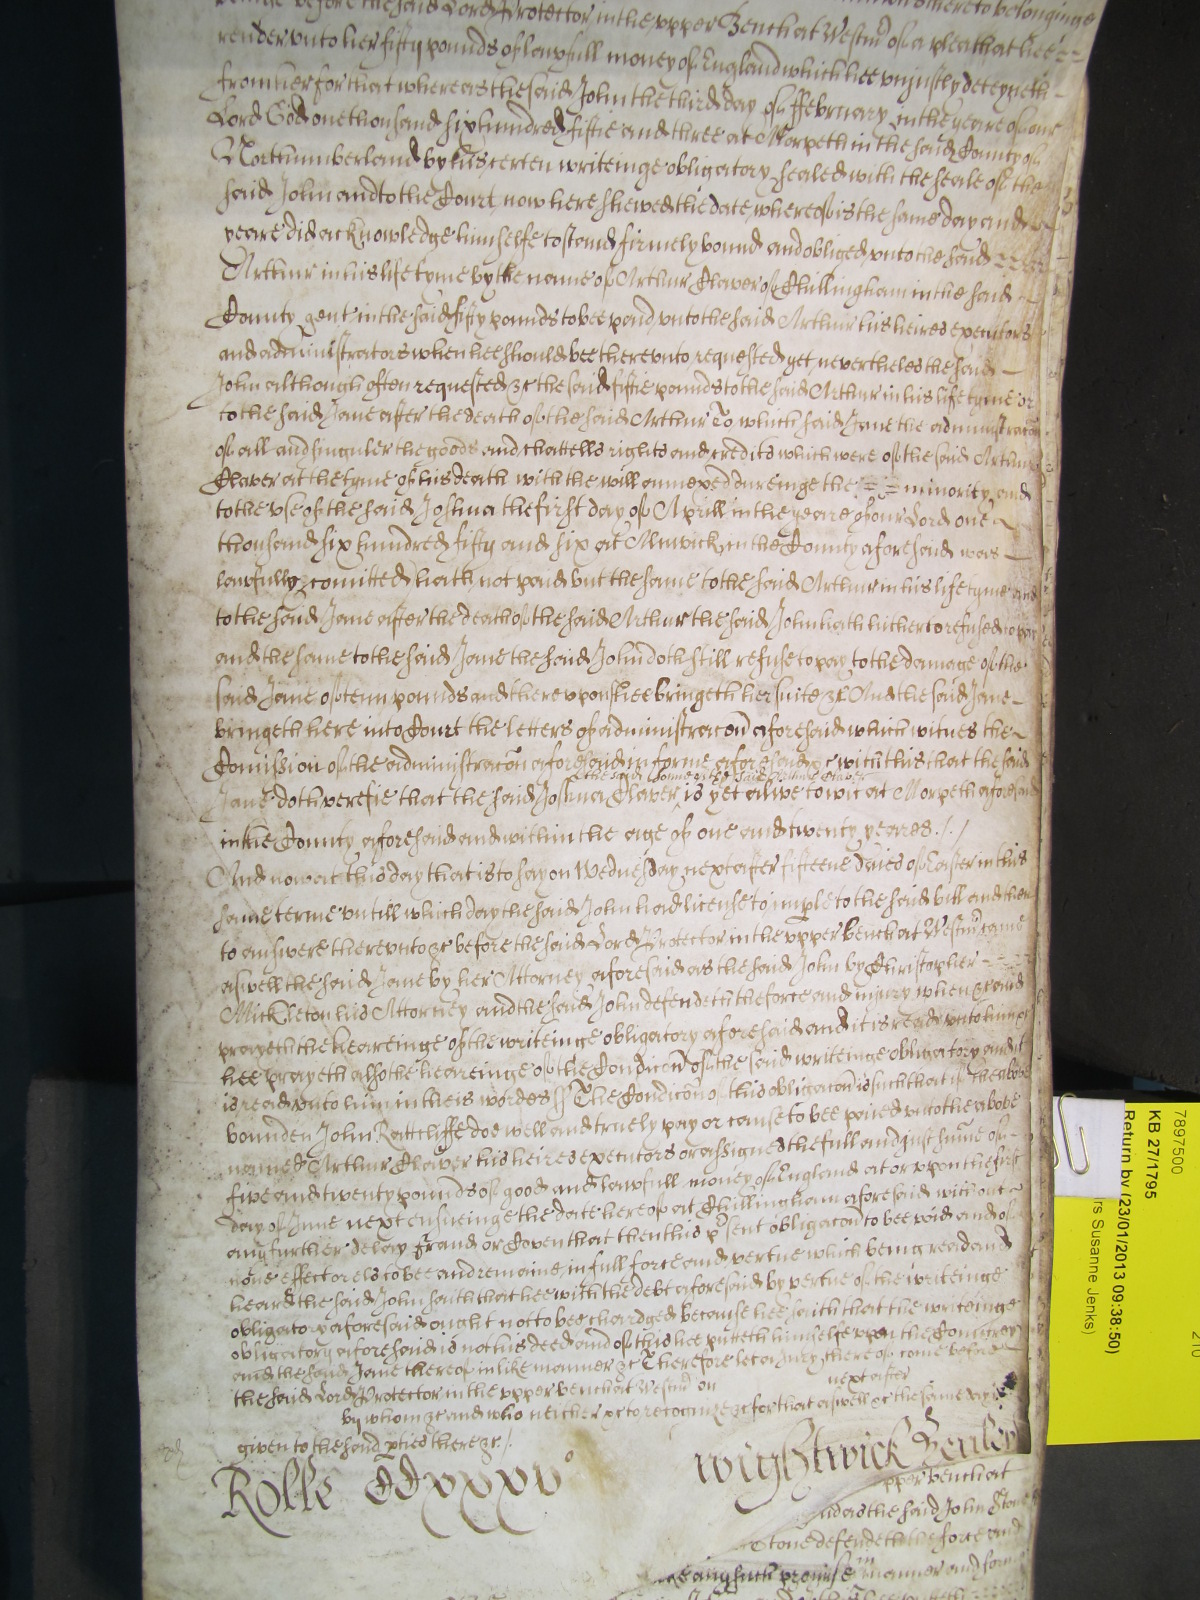 before the said Lord Protector in the upper Bench at Westm̄ of a plea that hee
render unto her fifty pounds of lawfull money of England which hee unjustly deteyneth
from her for that whereas the said John the third day of ffebruary in the yeare of our
Lord God one thousand six hundred fiftie and three at Morpeth in the said County of
Northumberland by his certen writeinge obligatory sealed with the seale of the
said John and to the Court now here shewed the date whereof is the same day and
yeare did acknowledge himselfe to stand firmely bound and obliged unto the said
Arthur in his life tyme by the name of Arthur Claver of Chillingham in the said
County gent in the said fifty pounds to bee paid unto the said Arthur his heires executors
and administrators when hee should bee thereunto requested yet nevertheles the said
John although often requested &c the said fiftie pounds to the said Arthur in his life tyme or
to the said Jane after the death of the said Arthur To which said Jane the administracōn
of all and singuler the goods and chattells rights and credits which were of the said Arthur
Claver at the tyme of his death with the will annexed dureinge the minority and
to the use of the said Joshua the first day of Aprill in the yeare of our Lord one
thousand six hundred fifty and six at Alnwick in the County aforesaid was
lawfully comitted hath not paid but the same to the said Arthur in his life tyme and
to the said Jane after the death of the said Arthur the said John hath hitherto refused to pay
and the same to the said Jane the said John doth still refuse to pay to the damage of the
said Jane of tenn pounds and thereupon shee bringeth her suite &c And the said Jane
bringeth here into Court the letters of administracōn aforesaid which witnes the
Comission of the administracōn aforesaid in forme aforesaid &c with this that the said
Jane doth verefie that the said Joshua Claver is yet alive to wit at Morpeth aforesaid
in the County aforesaid and within the age of one and twenty yeares ./.
And now at this day that is to say on Wednesday next after fifteene daies of Easter in this
same terme untill which day the said John had license to imple to the said bill and then
to answere thereunto &c before the said Lord Protector in the upper bench at Westm̄ came
aswell the said Jane by her Attorney aforesaid as the said John by Christopher
Mickleton his Attorney and the said John defendeth the force and injury when &c and
prayeth the heareinge of the writeinge obligatory aforesaid and it is read unto him &c
hee prayeth also the heareinge of the Condicōn of the said writeinge obligatory and it
is read unto him in theis wordes ss The Condicōn of this obligacōn is such that if the above
bounden John Rattcliffe doe well and truely pay or cause to bee paied unto the above
named Arthur Claver his heires executors or assignes the full and just sume of
five and twenty pounds of good and lawfull money of England at or upon the first
day of June next ensueinge the date hereof at Chillingham aforesaid without
any further delay fraud or Coven that then this p̄sent obligacōn to bee void and of
none effect or els to bee and remaine in full force and vertue which being read and
heard the said John saith that hee with the debt aforesaid by vertue of the writeinge
obligatory aforesaid ought not to bee chardged because hee saith that the writeinge
obligatory aforesaid is not his deed and of this hee putteth himselfe upon the Countrey
and the said Jane thereof in like manner &c Therefore let a Jury thereof come before
the said Lord Protector in the upper bench at Westm̄ on next after
by whom &c and who neither &c to recognize &c for that aswell &c the same day is
given to the said p̄ties there &c ./.
Rolle CCxxxvᵒ Wightwick
pper bench at
and as the said John Stone
Stone defendeth the force and
any such promise in manner and forme
7897500
KB 27/1795
Return by (23/01/2013 09:38:50)
rs Susanne Jenks)